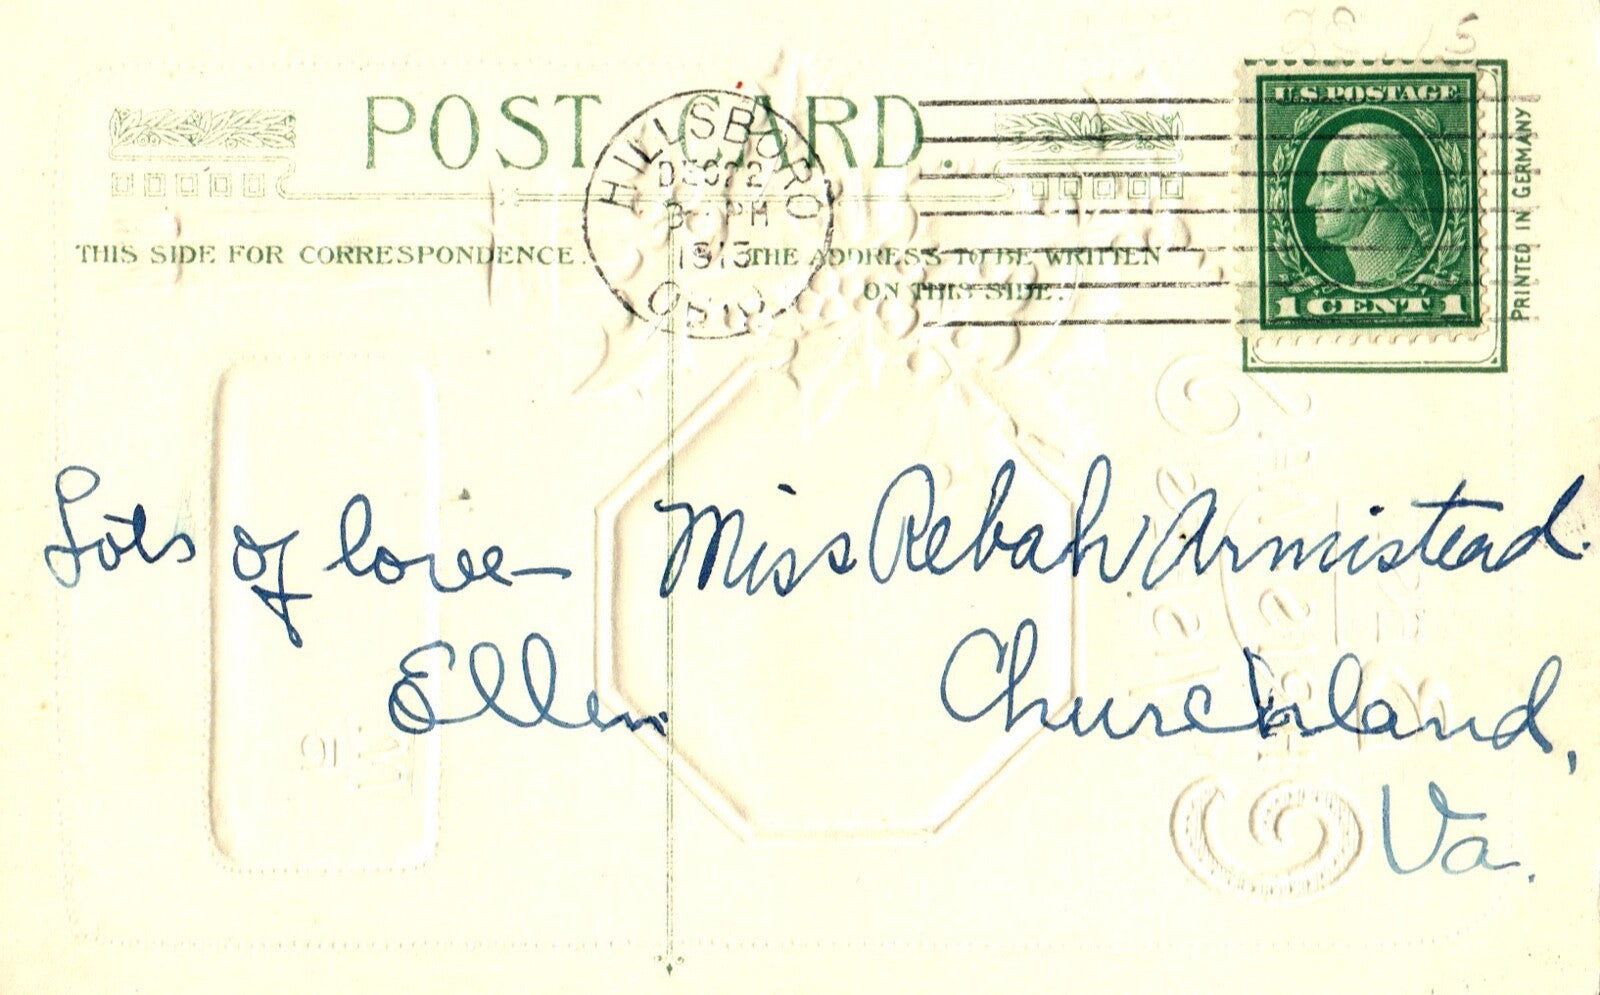 POST CARD.
HILLSBORO
DEC 22
3 - PM
1913
OHIO
U.S. POSTAGE
1 CENT 1
PRINTED IN GERMANY
THIS SIDE FOR CORRESPONDENCE.
THE ADDRESS TO BE WRITTEN
ON THIS SIDE.
Lots of love—
Ellen
Miss Rebah Armistead.
Churchland,
Va.